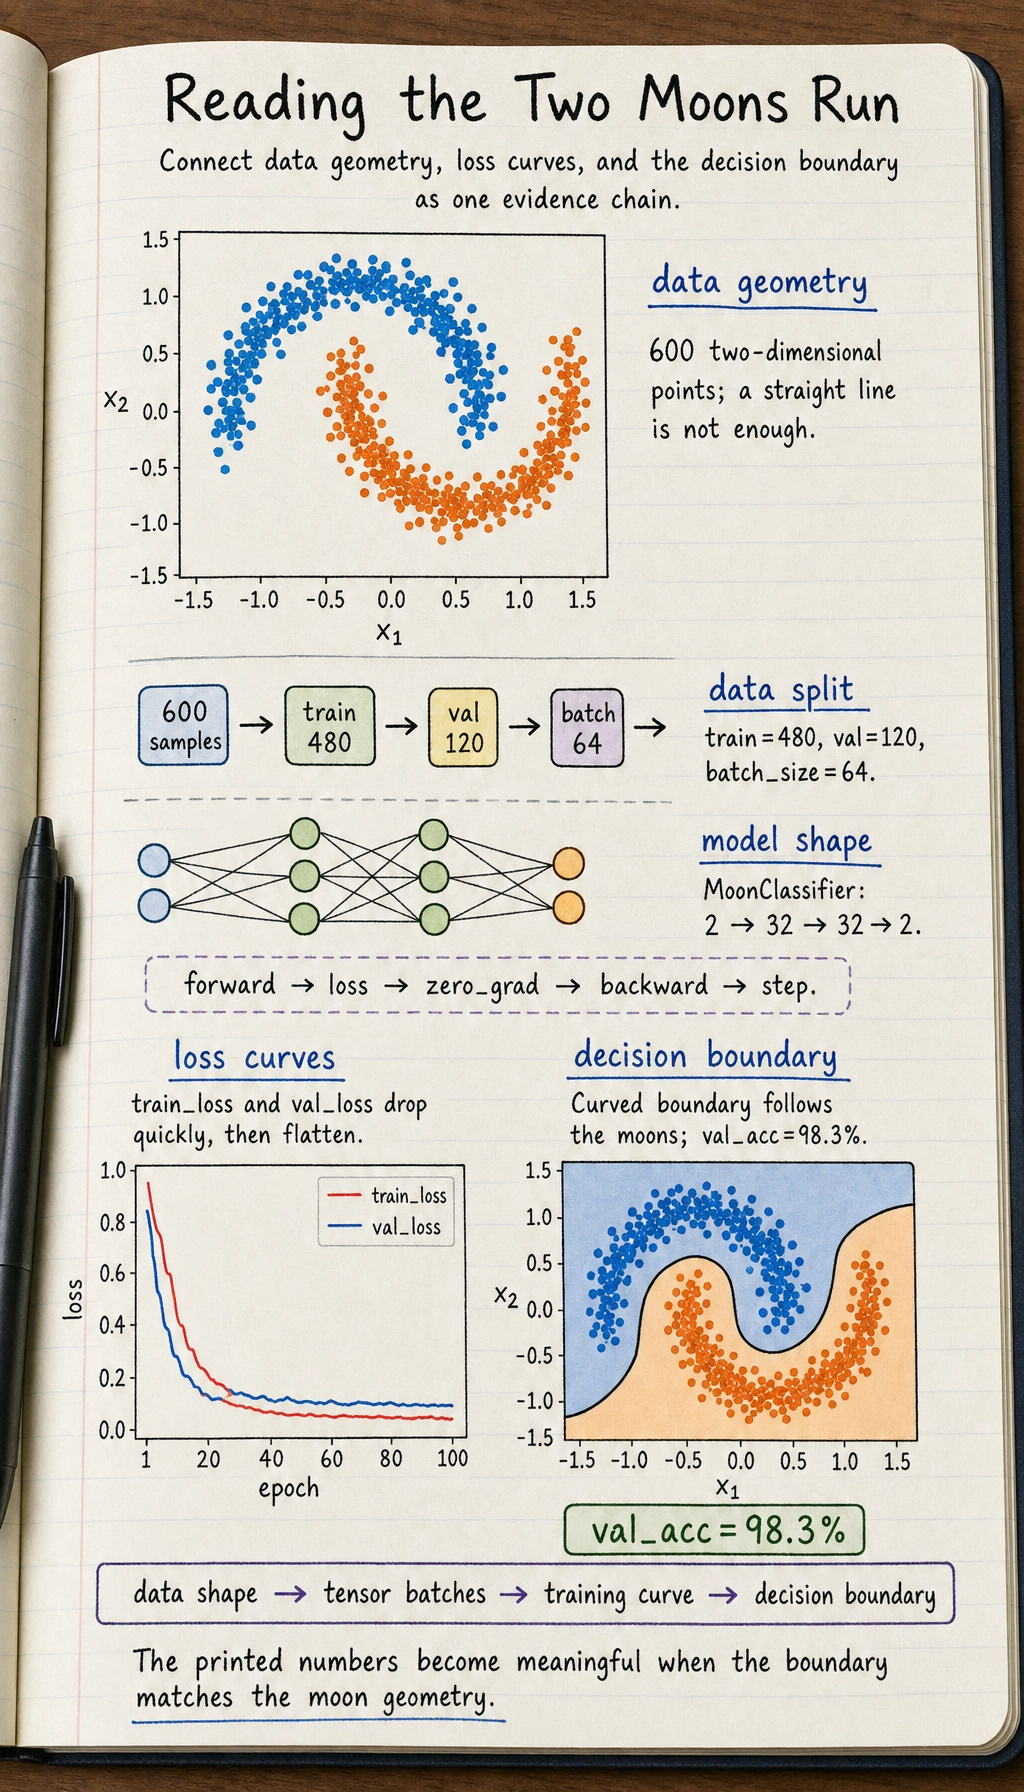 Reading the Two Moons Run
Connect data geometry, loss curves, and the decision boundary
as one evidence chain.
1.5
1.0
0.5
0.0
-0.5
-1.0
-1.5
x2
-1.5 -1.0 -0.5 0.0 0.5 1.0 1.5
x1
data geometry
600 two-dimensional
points; a straight line
is not enough.
600
samples
→
train
480
→
val
120
→
batch
64
→
data split
train=480, val=120,
batch_size=64.
model shape
MoonClassifier:
2 → 32 → 32 → 2.
forward → loss → zero_grad → backward → step.
loss curves
train_loss and val_loss drop
quickly, then flatten.
1.0
0.8
0.6
0.4
0.2
0.0
loss
train_loss
val_loss
1 20 40 60 80 100
epoch
decision boundary
Curved boundary follows
the moons; val_acc=98.3%.
1.5
1.0
0.5
0.0
-0.5
-1.0
-1.5
x2
-1.5 -1.0 -0.5 0.0 0.5 1.0 1.5
x1
val_acc=98.3%
data shape → tensor batches → training curve → decision boundary
The printed numbers become meaningful when the boundary
matches the moon geometry.